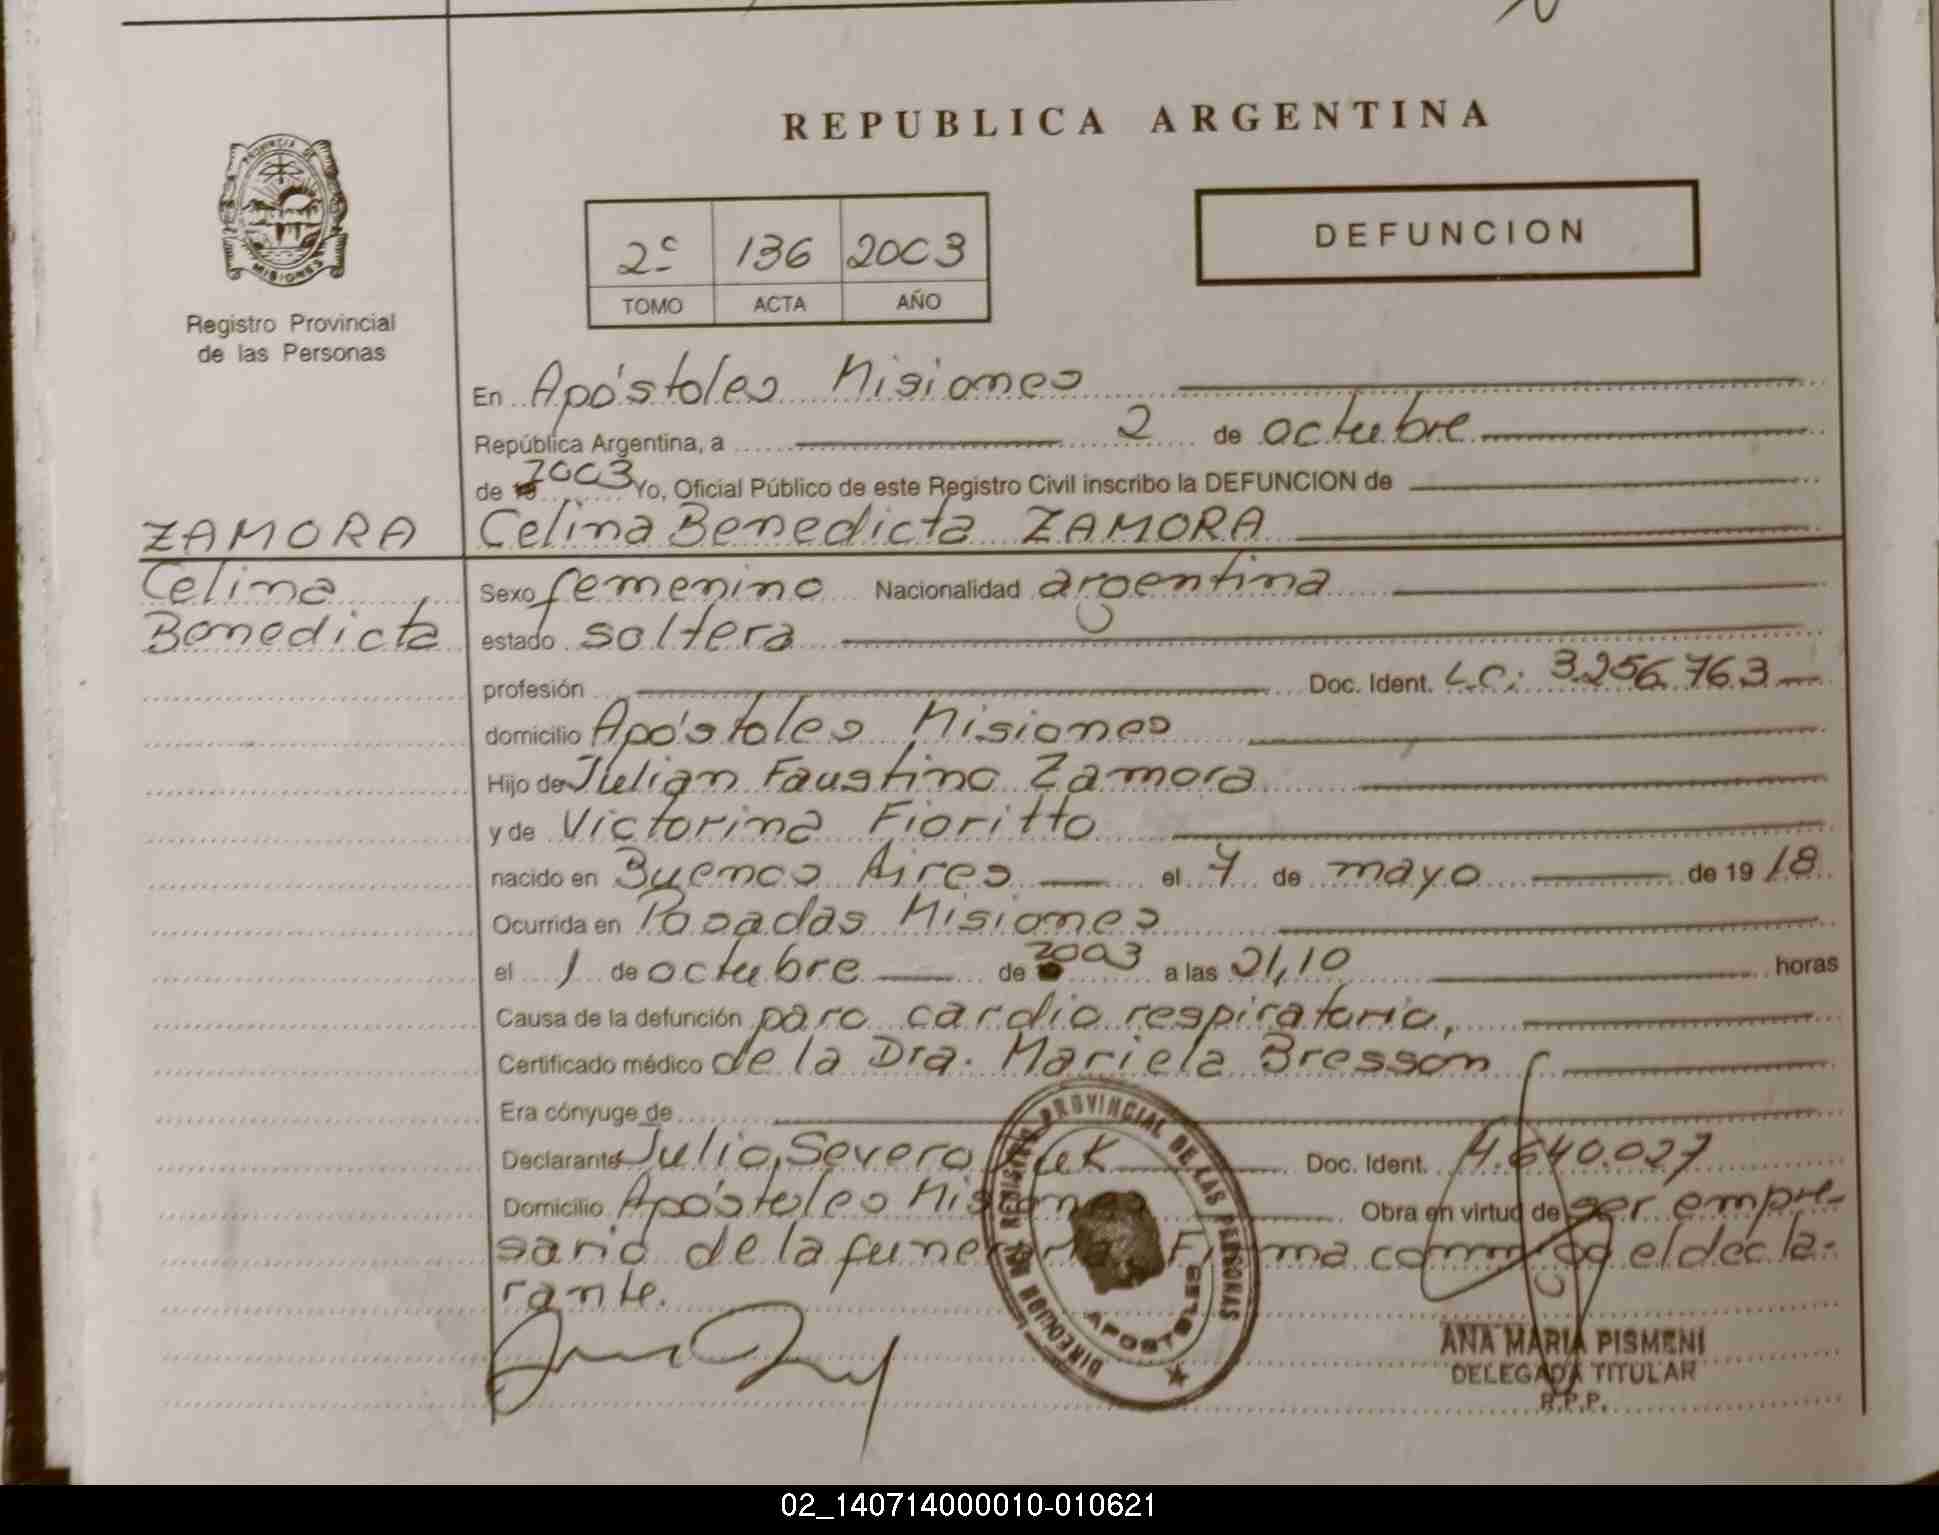 REPUBLICA ARGENTINA
PROVINCIA DE
MISIONES
Registro Provincial
de las Personas
2º 136 2003
TOMO ACTA AÑO
DEFUNCION
En Apóstoles Misiones
República Argentina, a 2 de octubre
de 2003 Yo, Oficial Público de este Registro Civil inscribo la DEFUNCION de
ZAMORA Celina Benedicta ZAMORA
Celina Sexo femenino Nacionalidad argentina
Benedicta estado soltera
profesión Doc. Ident. L.C: 3.256.763
domicilio Apóstoles Misiones
Hijo de Julian Faustino Zamora
y de Victorina Fioritto
nacido en Buenos Aires el 7 de mayo de 1918
Ocurrida en Posadas Misiones
el 1 de octubre de 2003 a las 21,10 horas
Causa de la defunción paro cardio respiratorio,
Certificado médico de la Dra. Mariela Bresson
Era cónyuge de
Declarante Julio Severo Doc. Ident. 4.640.027
Domicilio Apóstoles Misiones Obra en virtud de ser empre-
sario de la funeraria Firma conmigo el decla-
rante.
DIRECCION DEL REGISTRO PROVINCIAL DE LAS PERSONAS
APOSTOLES
ANA MARIA PISMENI
DELEGADA TITULAR
R.P.P.
02_140714000010-010621